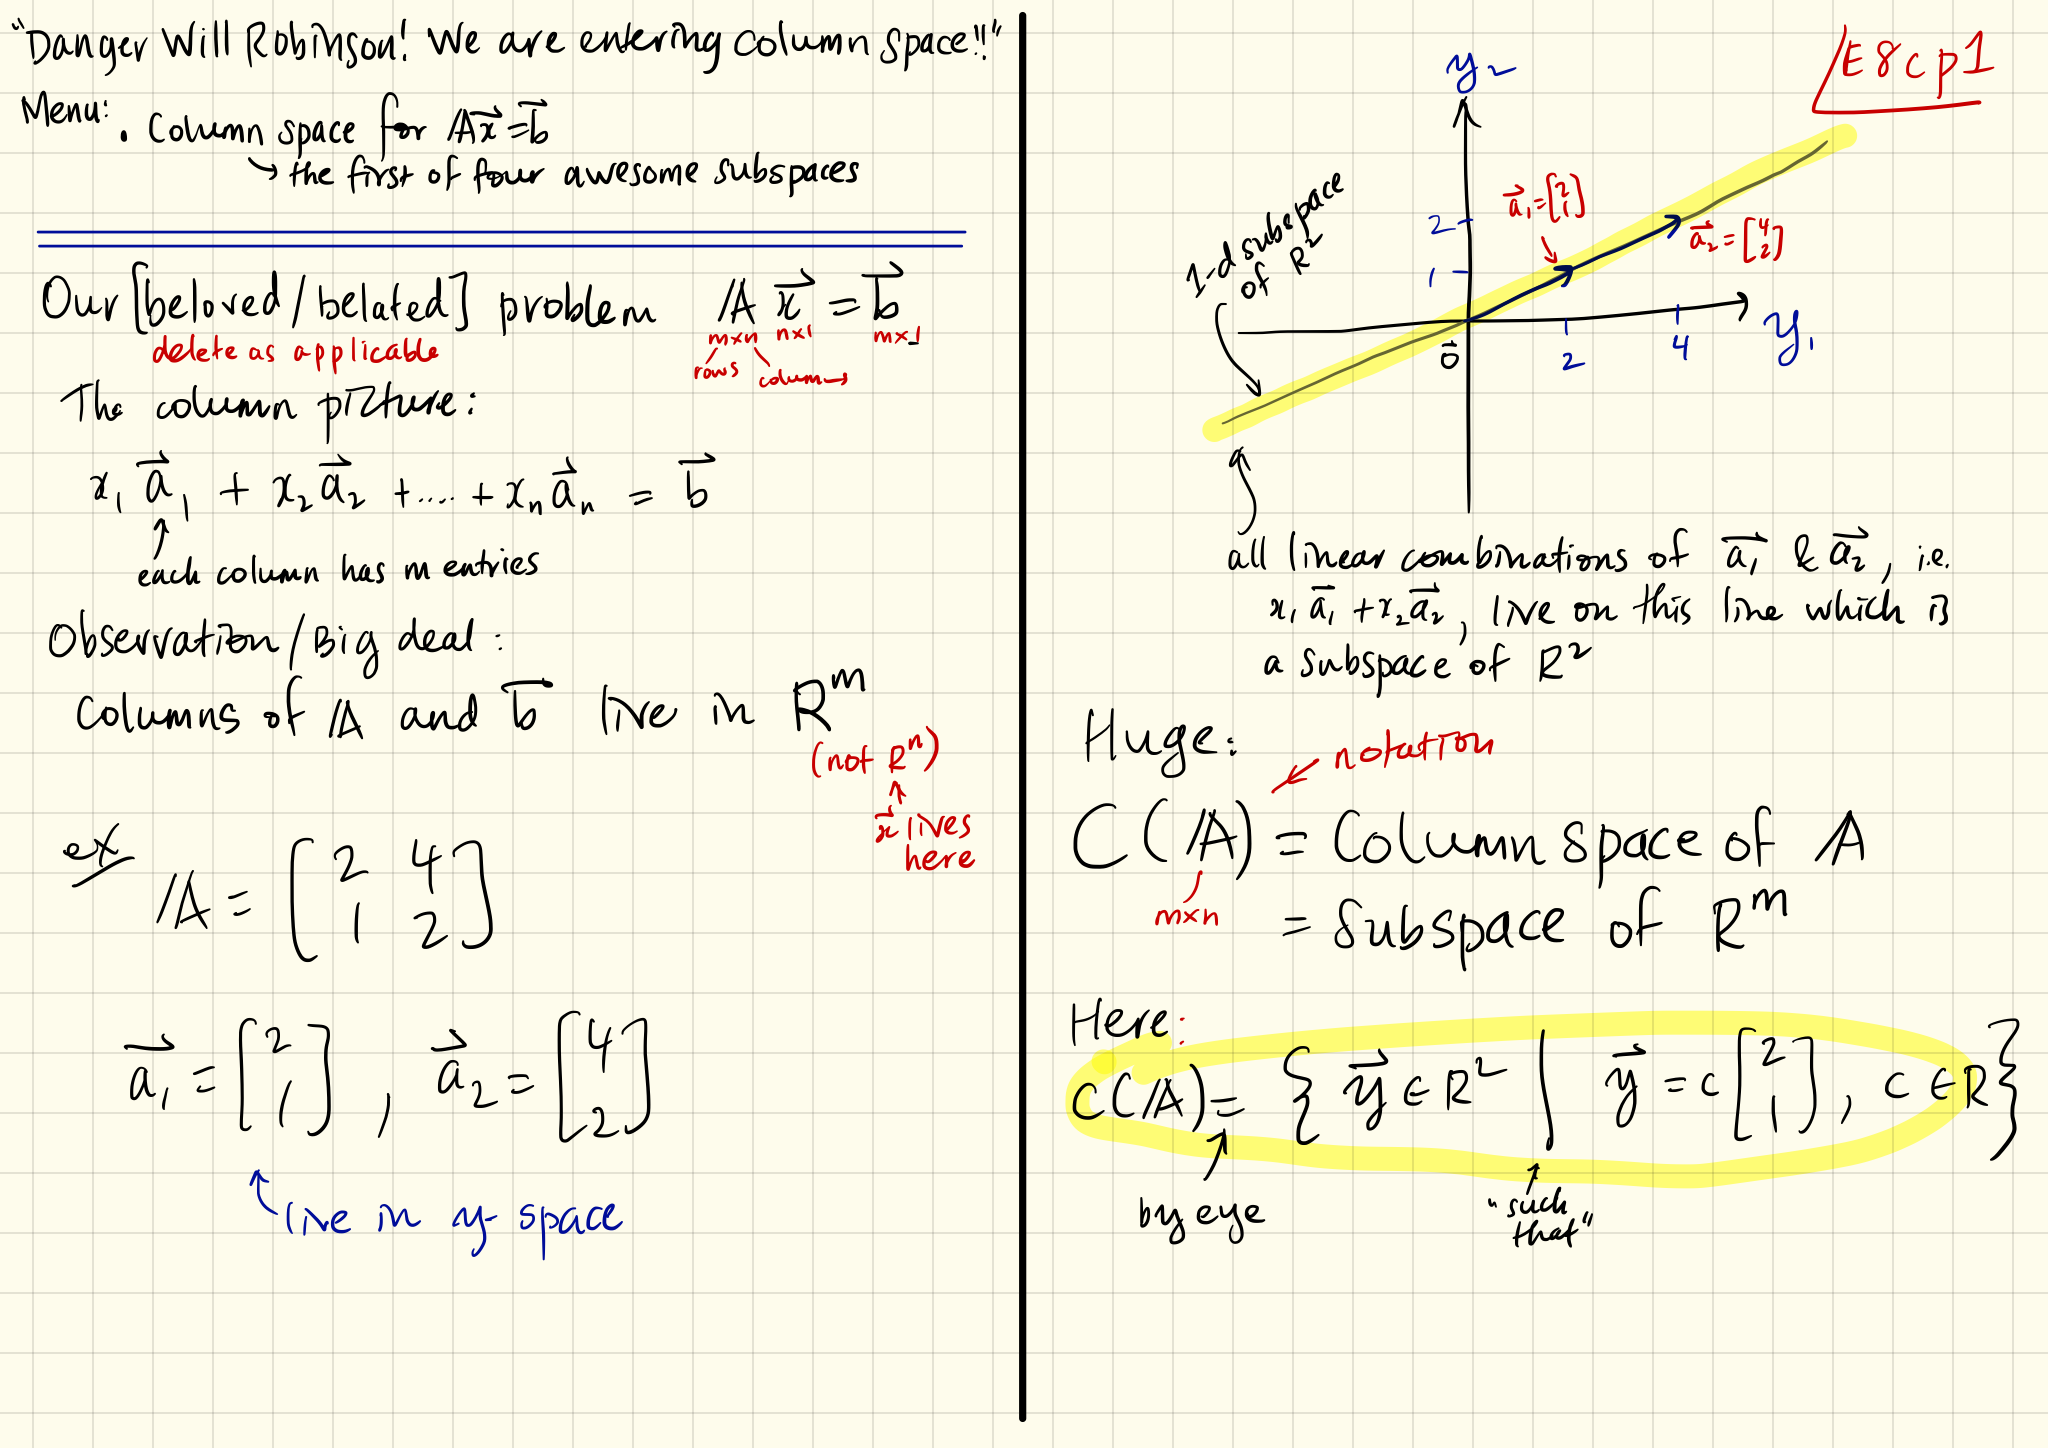 "Danger Will Robinson! We are entering column space!!"
Menu:
. Column space for 𝔸x⃗ = b⃗
↳ the first of four awesome subspaces
Our [beloved/belated] problem 𝔸 x⃗ = b⃗
delete as applicable
m×n n×1 m×1
rows columns
The column picture:
x₁ a⃗₁ + x₂ a⃗₂ + .... + xₙ a⃗ₙ = b⃗
each column has m entries
Observation / Big deal:
Columns of 𝔸 and b⃗ live in Rᵐ
(not Rⁿ)
x⃗ lives
here
ex
𝔸 = [2 4
1 2]
a⃗₁ = [2
1] , a⃗₂ = [4
2]
live in y-space
E8cp1
y₂
1-d subspace
of R²
a⃗₁ = [2
1]
a⃗₂ = [4
2]
2
1
0⃗
2
4
y₁
all linear combinations of a⃗₁ & a⃗₂, i.e.
x₁ a⃗₁ + x₂ a⃗₂, live on this line which is
a subspace of R²
Huge:
← notation
C(𝔸) = Column space of 𝔸
m×n
= Subspace of Rᵐ
Here:
C(𝔸) = { y⃗ ∈ R² | y⃗ = c [2
1], c ∈ R }
by eye
"such
that"